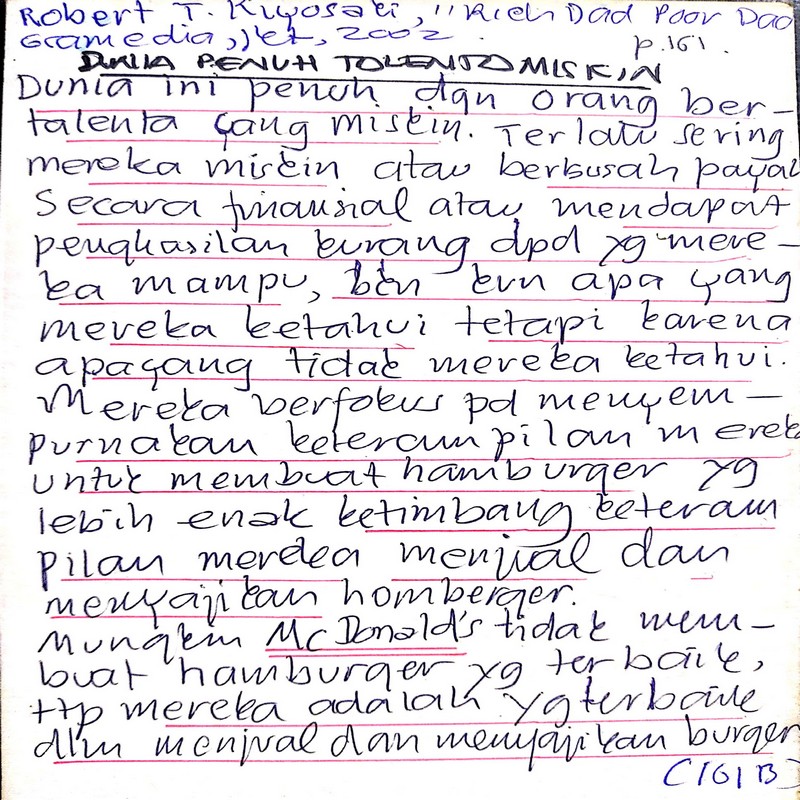 Robert T. Kiyosaki, "Rich Dad Poor Dad
Gramedia, Jkt, 2002 p.161.
DUNIA PENUH TOLENTO MISKIN
Dunia ini penuh dgn orang ber-
talenta yang miskin. Terlalu sering
mereka miskin atau berbusah payah
Secara finansial atau mendapat
penghasilan kurang dpd yg mere-
ka mampu, bkn krn apa yang
mereka ketahui tetapi karena
apa yang tidak mereka ketahui.
Mereka berfokus pd menyem-
purnakan keterampilan mereka
untuk membuat hamburger yg
lebih enak ketimbang keteram
pilan merdea menjual dan
menyajikan homberger.
Mungkin McDonald's tidak mem-
buat hamburger yg terbaik,
ttp mereka adalah yg terbaik
dlm menjual dan menyajikan burger
(161B)